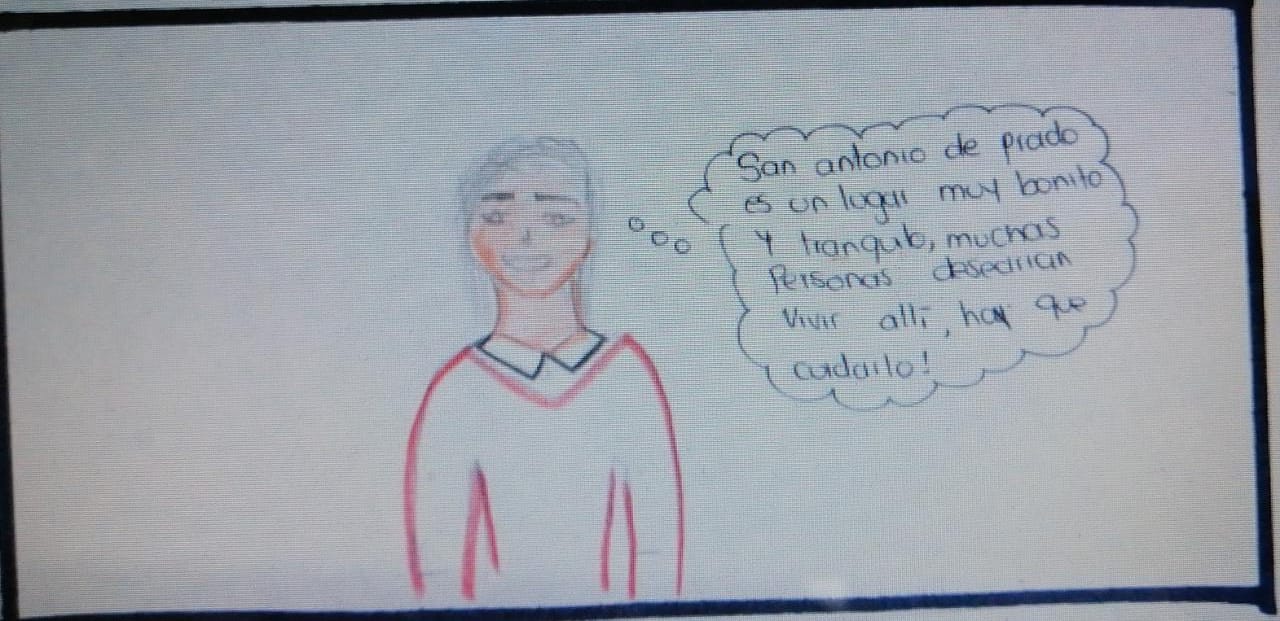 San antonio de prado
es un lugar muy bonito
Y tranquilo, muchas
Personas desearian
Vivir allí, hay que
cuidarlo!